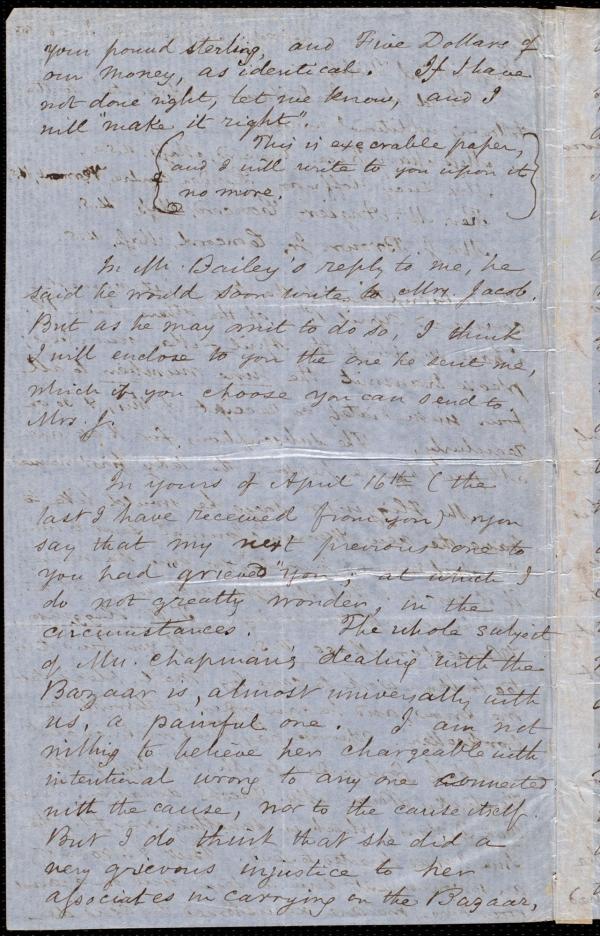 your pound sterling, and Five Dollars of
our money, as identical. If I have
not done right, let me know, and I
will "make it right".
(This is execrable paper,
and I will write to you upon it
no more.)
In Mr. Bailey's reply to me, he
said he would soon write to Mrs. Jacob.
But as he may omit to do so, I think
I will enclose to you the one he sent me,
which if you choose you can send to
Mrs. J.
In yours of April 16th (the
last I have received from you) you
say that my next previous one to
you had "grieved" you; at which I
do not greatly wonder, in the
circumstances. The whole subject
of Mrs. Chapman's dealing with the
Bazaar is, almost universally with
us, a painful one. I am not
willing to believe her chargeable with
intentional wrong to any one connected
with the cause, nor to the cause itself.
But I do think that she did a
very grievous injustice to her
associates in carrying on the Bazaar,